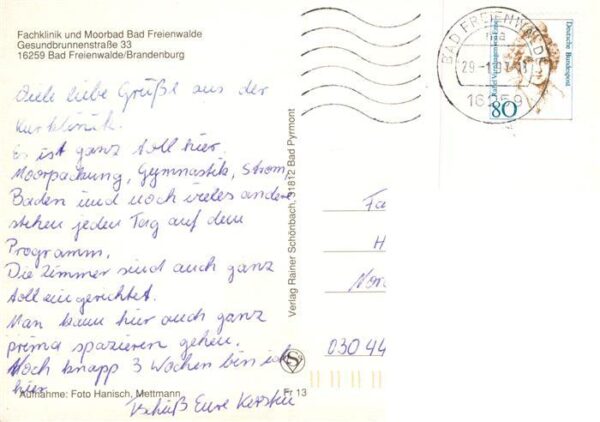 Fachklinik und Moorbad Bad Freienwalde
Gesundbrunnenstraße 33
16259 Bad Freienwalde/Brandenburg
Viele liebe Grüße aus der
Kurklinik.
Es ist ganz toll hier.
Moorpackung, Gymnastik, Strom,
Baden und noch vieles andere
stehen jeden Tag auf dem
Programm.
Die Zimmer sind auch ganz
toll eingerichtet.
Man kann hier auch ganz
prima spazieren gehen.
Noch knapp 3 Wochen bin ich
hier.
Tschüß Eure Kerstin
Aufnahme: Foto Hanisch, Mettmann
Fr 13
Verlag Rainer Schönbach, 31812 Bad Pyrmont
S
BAD FREIENWALDE
29.-1.97
16259
Deutsche Bundespost
80
Fa
H
03044